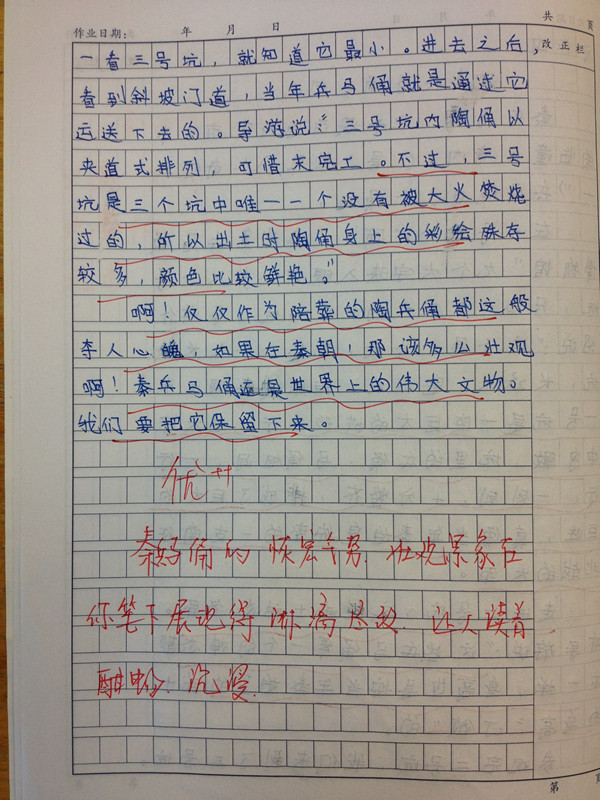 共 页
作业日期： 年 月 日
改正栏
一看三号坑，就知道它最小。进去之后，
看到斜坡门道，当年兵马俑就是通过它
运送下去的。导游说：“三号坑内陶俑以
夹道式排列，可惜未完工。不过，三号
坑是三个坑中唯一一个没有被大火焚烧
过的，所以出土时陶俑身上的彩绘残存
较多，颜色比较鲜艳。”
啊！仅仅作为陪葬的陶兵俑都这般
牵人心魄，如果在秦朝，那该多么壮观
啊！秦兵马俑这是世界上的伟大文物。
我们要把它保留下来。
优++
俑的恢宏气势、壮观景象在
你笔下展现得淋漓尽致，让人读着
酣畅、沉浸。
第 页